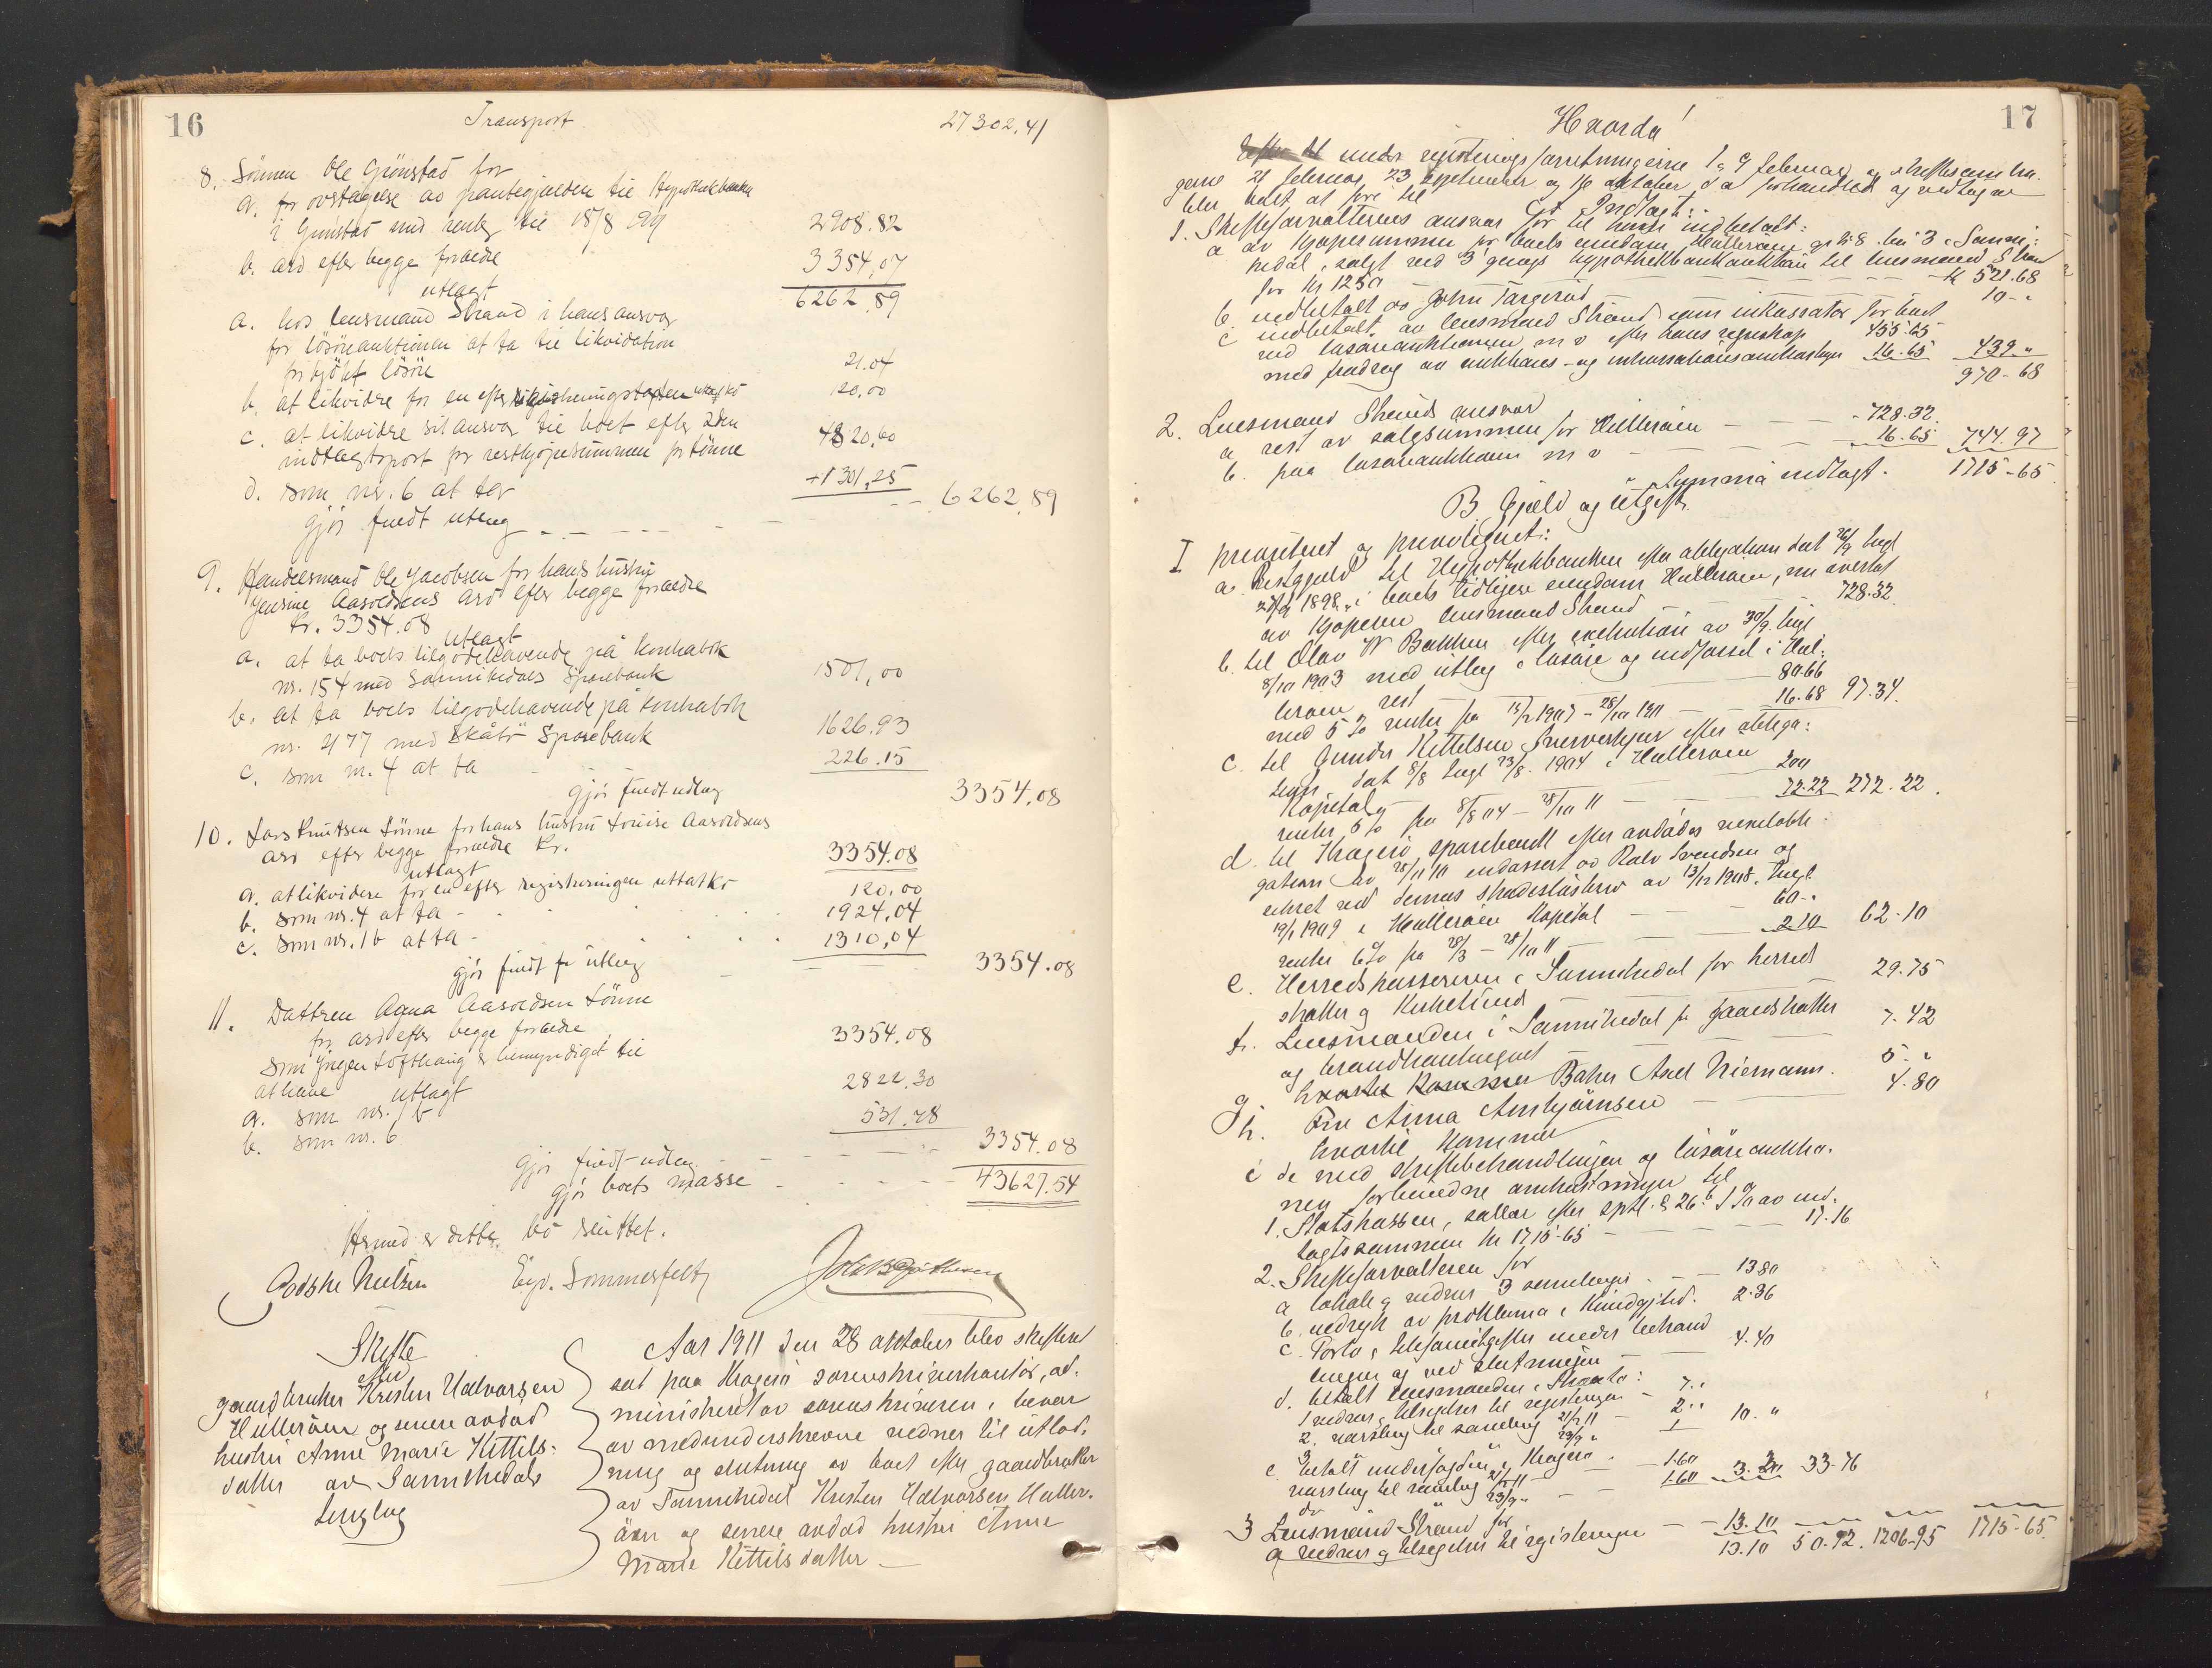 16
Transport 27302.41
8. Sönnen Ole Grönstad for
a. for overtagelse av pantegjælden til Hypothekbanken
i Grönstad med renter til 18/8 2908.82
b. arv efter begge forældre 3354,07
6262,89
utlagt
a. hos lensmand Strand i hans ansvar
for lösöreauktionen at ta til likvidation
for kjöpt lösöre 21.04
b. at likvidere for en efter registreringstaxten uttat ko 120.00
c. at likvidere sit ansvar til boet efter 2den
indtægtspost for restkjöpesummen for Tönne 4820,60
d. som nr. 6 at ta 1301,25
gjör fuldt utlæg 6262,89
9. Handelsmand Ole Jacobsen for hans hustru
Jensine Aasoldsens arv efter begge forældre
kr. 3354.08
utlagt
a. at ta boets tilgodehavende på kontrabok
nr. 154 med Sannikedals Sparebank 1501,00
b. at ta boets tilgodehavende på kontrabok
nr. 477 med Skåtö Sparebank 1626.93
c. som nr. 4 at ta 226.15
gjör fuldt udlæg 3354,08
10. Lars Knutsen Tönne for hans hustru Louise Aasoldsens
arv efter begge forældre kr. 3354.08
utlagt
a. at likvidere for en efter registreringen uttat ko 120,00
b. som nr. 4 at ta 1924,04
c. som nr. 1b at ta 1310,04
gjör fuldt utlæg 3354.08
11. Dattren Agna Aasoldsen Tönne
for arv efter begge forældre 3354.08
som Jörgen Lofthaug er bemyndiget til
at hæve
utlagt
a. som nr. 1 b 2822.30
b. som nr. 6 531.78
gjör fuldt udlæg 3354.08
gjör boets masse 43627.54
Hermed er dette bo sluttet.
Godske Nielsen Eyv. Sommerfelt
Skifte
efter
gaardbruker Kristen Halvorsen
Hulleråen og senere avdöd
hustru Anne Marie Kittils-
datter av Sannikedals
tinglag
Aar 1911 den 28 oktober blev skifteret
sat paa Kragerö sorenskriverkontor, ad-
ministreret av sorenskriveren i nævær
av medunderskrevne vidner til utlod-
ning og slutning av boet efter gaardbruker
av Sannikedal Kristen Halvorsen Huller-
åen og senere avdöd hustru Anne
Marie Kittilsdatter.
17
Hvorda
under registreringsforretningerne 1 og 9 februar og skiftesamlin-
gerne 21 februar, 23 september og oktober d a forhandlet og vedtaget
blev boet at före til
Indtægt:
1. Skifteforvalterens ansvar for til ham indbetalt:
a av kjöpesummen for boets eiendom Hulleråen gr nr 8 bnr 3 i Sanni-
kedal, solgt ved 3 gangs hypothekbankauktion til lensmand Strand
for kr 1250 kr 521.68
b. indbetalt av John Targerud 10-"
c indbetalt av lensmand Strand som inkassator for boet
ved lösöreauktionen m v efter hans regnskap 455.65
med fradrag av auktions- og inkassationsomkostninger 16.65 439 "
970-68
2. Lensmand Strands ansvar
a rest av salgsummen for Hulleråen 728.32
b. paa lösöreauktionen m v 16.65 744.97
Summa indtægt. 1715-65
B Gjæld og utgift
I prioritert og privilegert:
a. Restgjæld til Hypothekbanken efter obligation dat 26/9 tingl
27/9 1898 i boets tidligere eiendom Hulleråen, nu overtat
av kjöperen lensmand Strand 728.32
b. til Olav N Bakken efter exekution av 30/9 tingl
8/10 1903 med utlæg i lösöre og indförsel i Hul-
leråen rest 80.66
med 5 % renter fra 15/2 1907 - 28/10 1911 16.68 97.34
c. til Gunder Kittelsen efter obliga-
tion dat 8/8 tingl 23/8 1904 i Hulleråen
Kapital 200
renter 5 % fra 8/8 04 - 28/10 11 72.22 272.22
d. til Kragerö sparebank efter avdödes vexelobli-
gation av 28/11 10 endossert av Rolv Svendsen og
sikret ved dennes skadeslösbrev av 13/12 1908 tingl
19/1 1909 i Hulleråen Kapital 60-"
renter 6 % fra 28/3 - 28/10 11 2.10 62-10
e. Herredskassereren i Sannikedal for herreds
skatter og Kirketiende 29.75
f. Lensmanden i Sannikedal for jordskatter
og brandkontingent 7.42
g. Baker Axel Niemann 5-"
h. Fru Anna Ambjörnsen 4.80
hvortil kommer
i de med skiftebehandlingen og lösöreauktio-
nen forbundne omkostninger til
1. Statskassen, sallær efter sptl. § 26 b 1 % av ind-
tægtssummen kr 1715-65 17.16
2. Skifteforvalteren for
a lokale og vidner 3 samlinger 13.80
b. indryk av proklama i Kundgjtid. 2.36
c. Porto, telefonutgifter under behand
lingen og ved slutningen 4.40
d. betalt lensmanden i Skåtö:
1 vidner, tilsigelse til registeringen 7."
2. varsling til samling 21/2 11 2."
3 23/9 " 1 10."
e. betalt underfogden i Kragerö
varsling til samling 21/2 11 1.60
do 23/9 " 1.60 3.20 33-76
3 Lensmand Strand for
a vidner og tilsigelse til registeringen 13.10
13.10 50.92 1206-95 1715-65